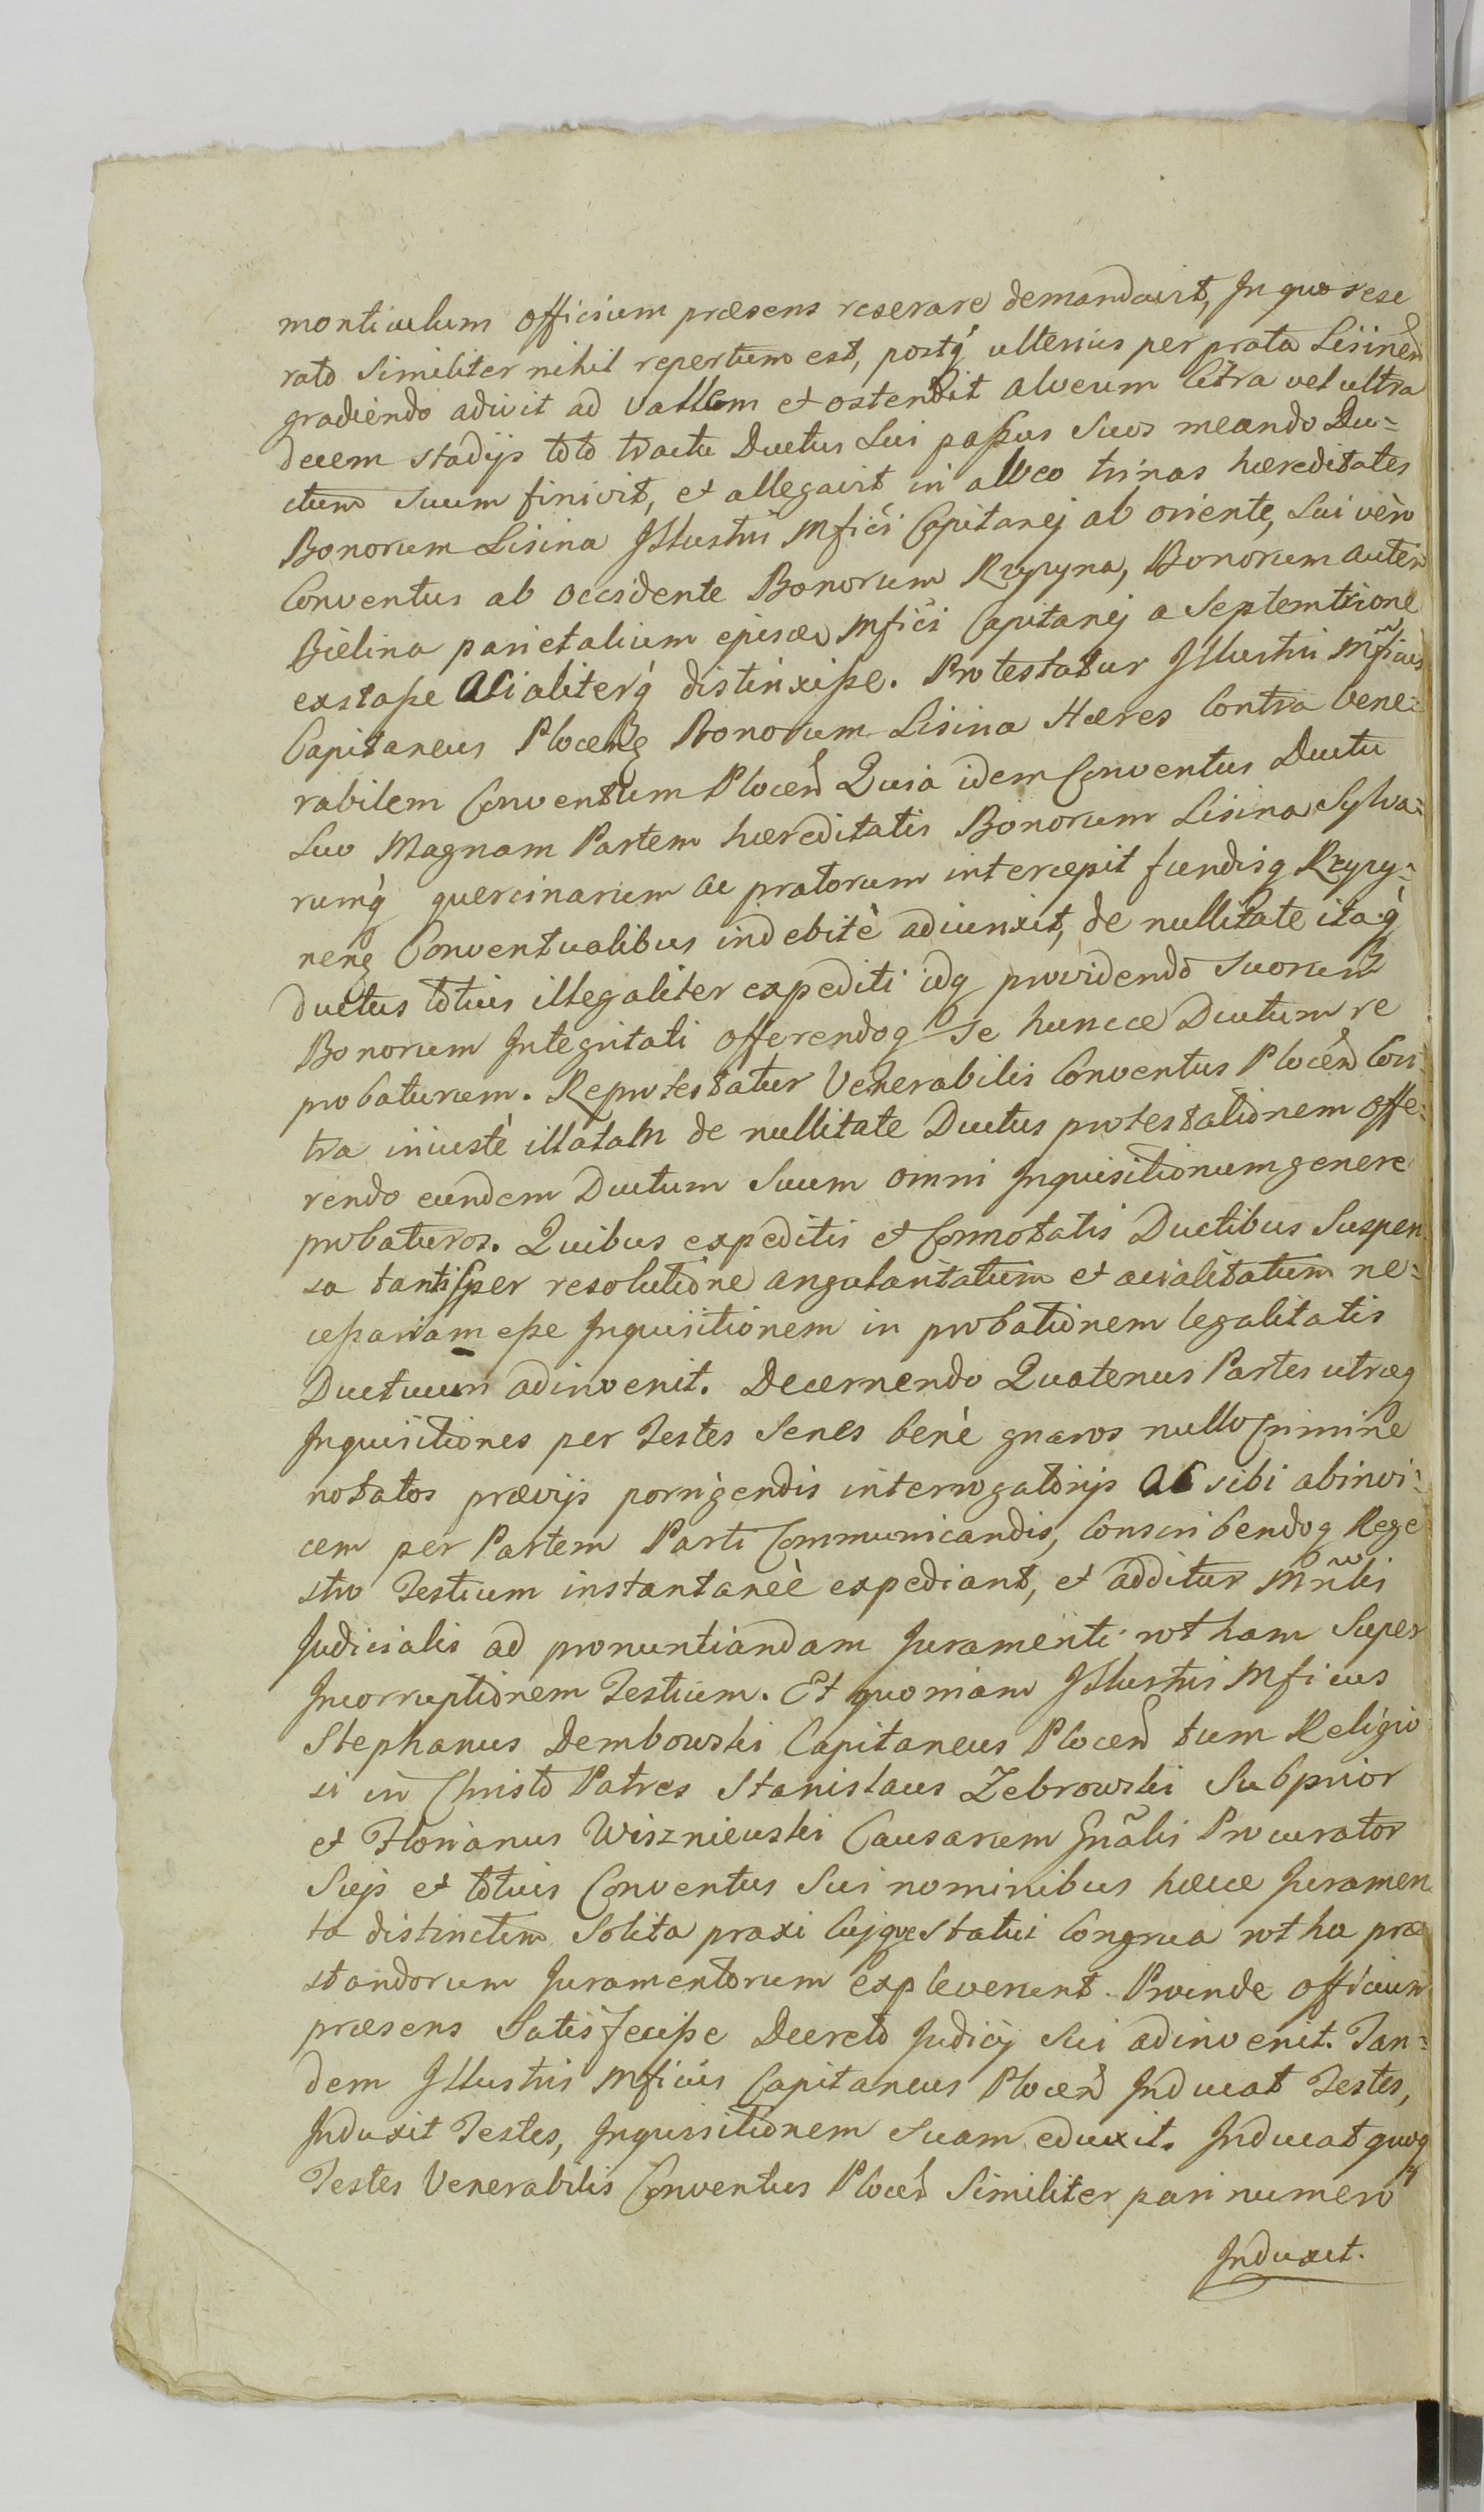 monticulum officium præsens reserare demandavit, In quo rese
rato Similiter nihil repertum est, postq́ ulterius per prata Lisinen̄
gradiendo adivit ad vallem et ostendit alveum Citra vel ultra
decem stadijs toto tractu Ductus Sui paßus Suos meando Du=
ctum Suum finivit, et allegavit in alveo trinas hæreditates
Bonorum Lisina Illustris Mfići Capitanej ab oriente, Sui vero
Conventus ab occidente Bonorum Rzyzyna, Bonorum autem
Bielina parietalium ejusdem Mfići Capitanej a Septemtrione
exstaße Acialiterq́ distinxiße. Protestatur Illustris Mficus
Capitaneus Plocens Bonorum Lisina Hæres Contra Vene=
rabilem Conventum Plocen̄ Quia idem Conventus Ductu
Suo Magnam Partem hæreditatis Bonorum Lisina Sylva=
rumq́ quercinarum ac pratorum intercepit fundisq Rzyzy=
nens Conventualibus indebitè adiunxit, de nullitate itaq́
ductus totius illegaliter expediti idq providendo Suorum
Bonorum Integritati offerendoq Se huncce Ductum re
probaturum. Reprotestatur Venerabilis Conventus Plocen̄ Con=
tra iniustè illatam de nullitate Ductus protestationem offe=
rendo eundem Ductum Suum omni Inquisitionum genere
probaturos. Quibus expeditis et Connotatis Ductibus Suspen
sa tantisper resolutione angularitatum et acialitatum ne=
ceßariam eße Inquisitionem in probationem legalitatis
Ductuum adinvenit. Decernendo Quatenus Partes utræq
Inquisitiones per Testes Senes benè gnaros nullo Crimine
notatos prævijs porrigendis interrogatorijs ac sibi abinvi=
cem per Partem Parti Communicandis, Conscribendoq Rege
stro Testium instantaneè expediant, et additur Mrlis
Judicialis ad pronuntiandam Juramenti rotham Super
Incorruptionem Testium. Et quoniam Illustris Mficus
Stephanus Dembowski Capitaneus Plocen̄ tum Religio
si in Christo Patres Stanislaus Zebrowski Subprior
et Florianus Wiszniewski Causarum Gnãlis Procurator
Suis et totius Conventus Sui nominibus hæcce Juramen
ta distinctim Solita praxi Cujqve Statui Congrua rotha præ
standorum Juramentorum expleverunt. Proinde officium
præsens Satisfeciße Decreto Judicij Sui adinvenit. Tan=
dem Illustris Mficus Capitaneus Plocen̄ Inducat Testes,
Induxit Testes, Inquisitionem Suam eduxit. Inducat quoq
Testes Venerabilis Conventus Plocen̄ Similiter pari numero
Induxit.